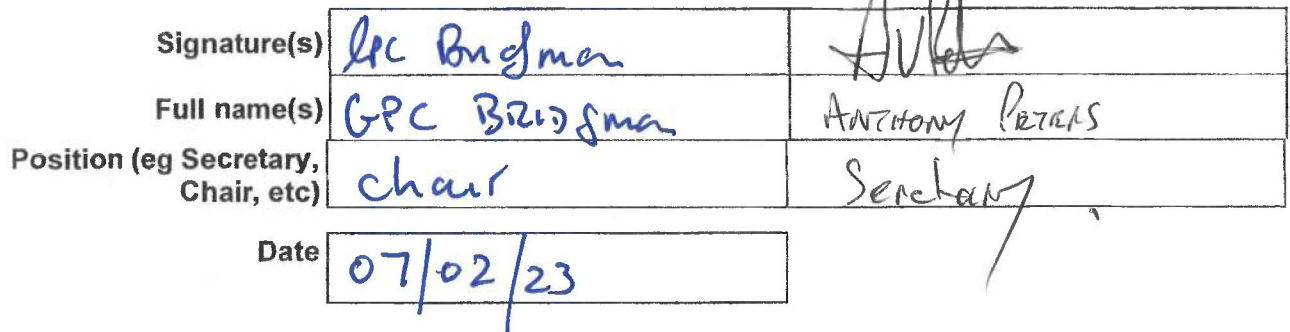 Signature(s) GPC Bridgman
Full name(s) GPC BRIDgman ANTHONY PETERS
Position (eg Secretary,
Chair, etc) chair Secretary
Date 07/02/23